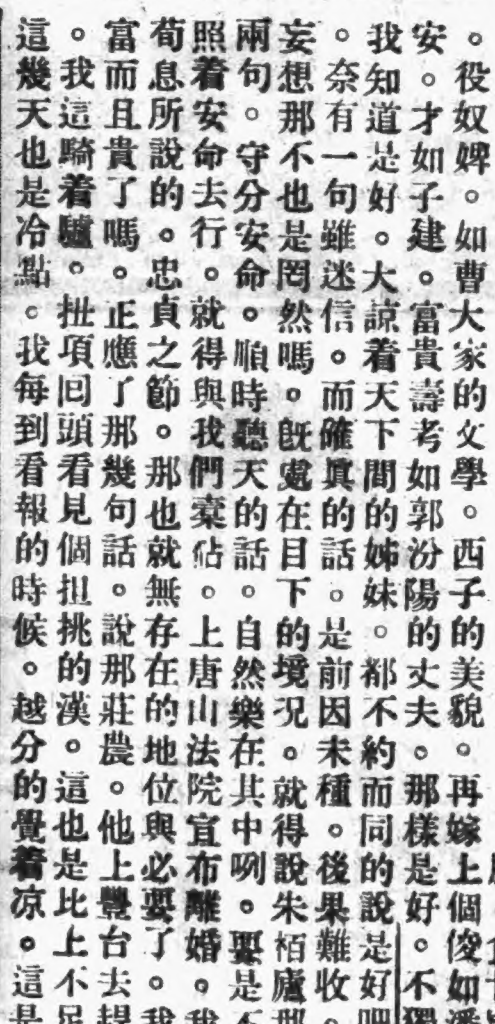 。役奴婢。如曹大家的文學。西子的美貌。再嫁上個俊如潘
安。才如子建。富貴壽考如郭汾陽的丈夫。那樣是好。不獨
我知道是好。大諒着天下間的姊妹。都不約而同的說是好吧
。奈有一句雖迷信。而確眞的話。是前因未種。後果難收。
妄想那不也是罔然嗎。旣處在目下的境況。就得說朱栢廬那
兩句。守分安命。順時聽天的話。自然樂在其中咧。要是不
照着安命去行。就得與我們棄佔。上唐山法院宣布離婚。我
荀息所說的。忠貞之節。那也就無存在的地位與必要了。我
富而且貴了嗎。正應了那幾句話。說那莊農。他上豐台去趕
。我這騎着驢。扭項回頭看見個担挑的漢。這也是比上不足
這幾天也是冷點。我每到看報的時候。越分的覺着凉。這是